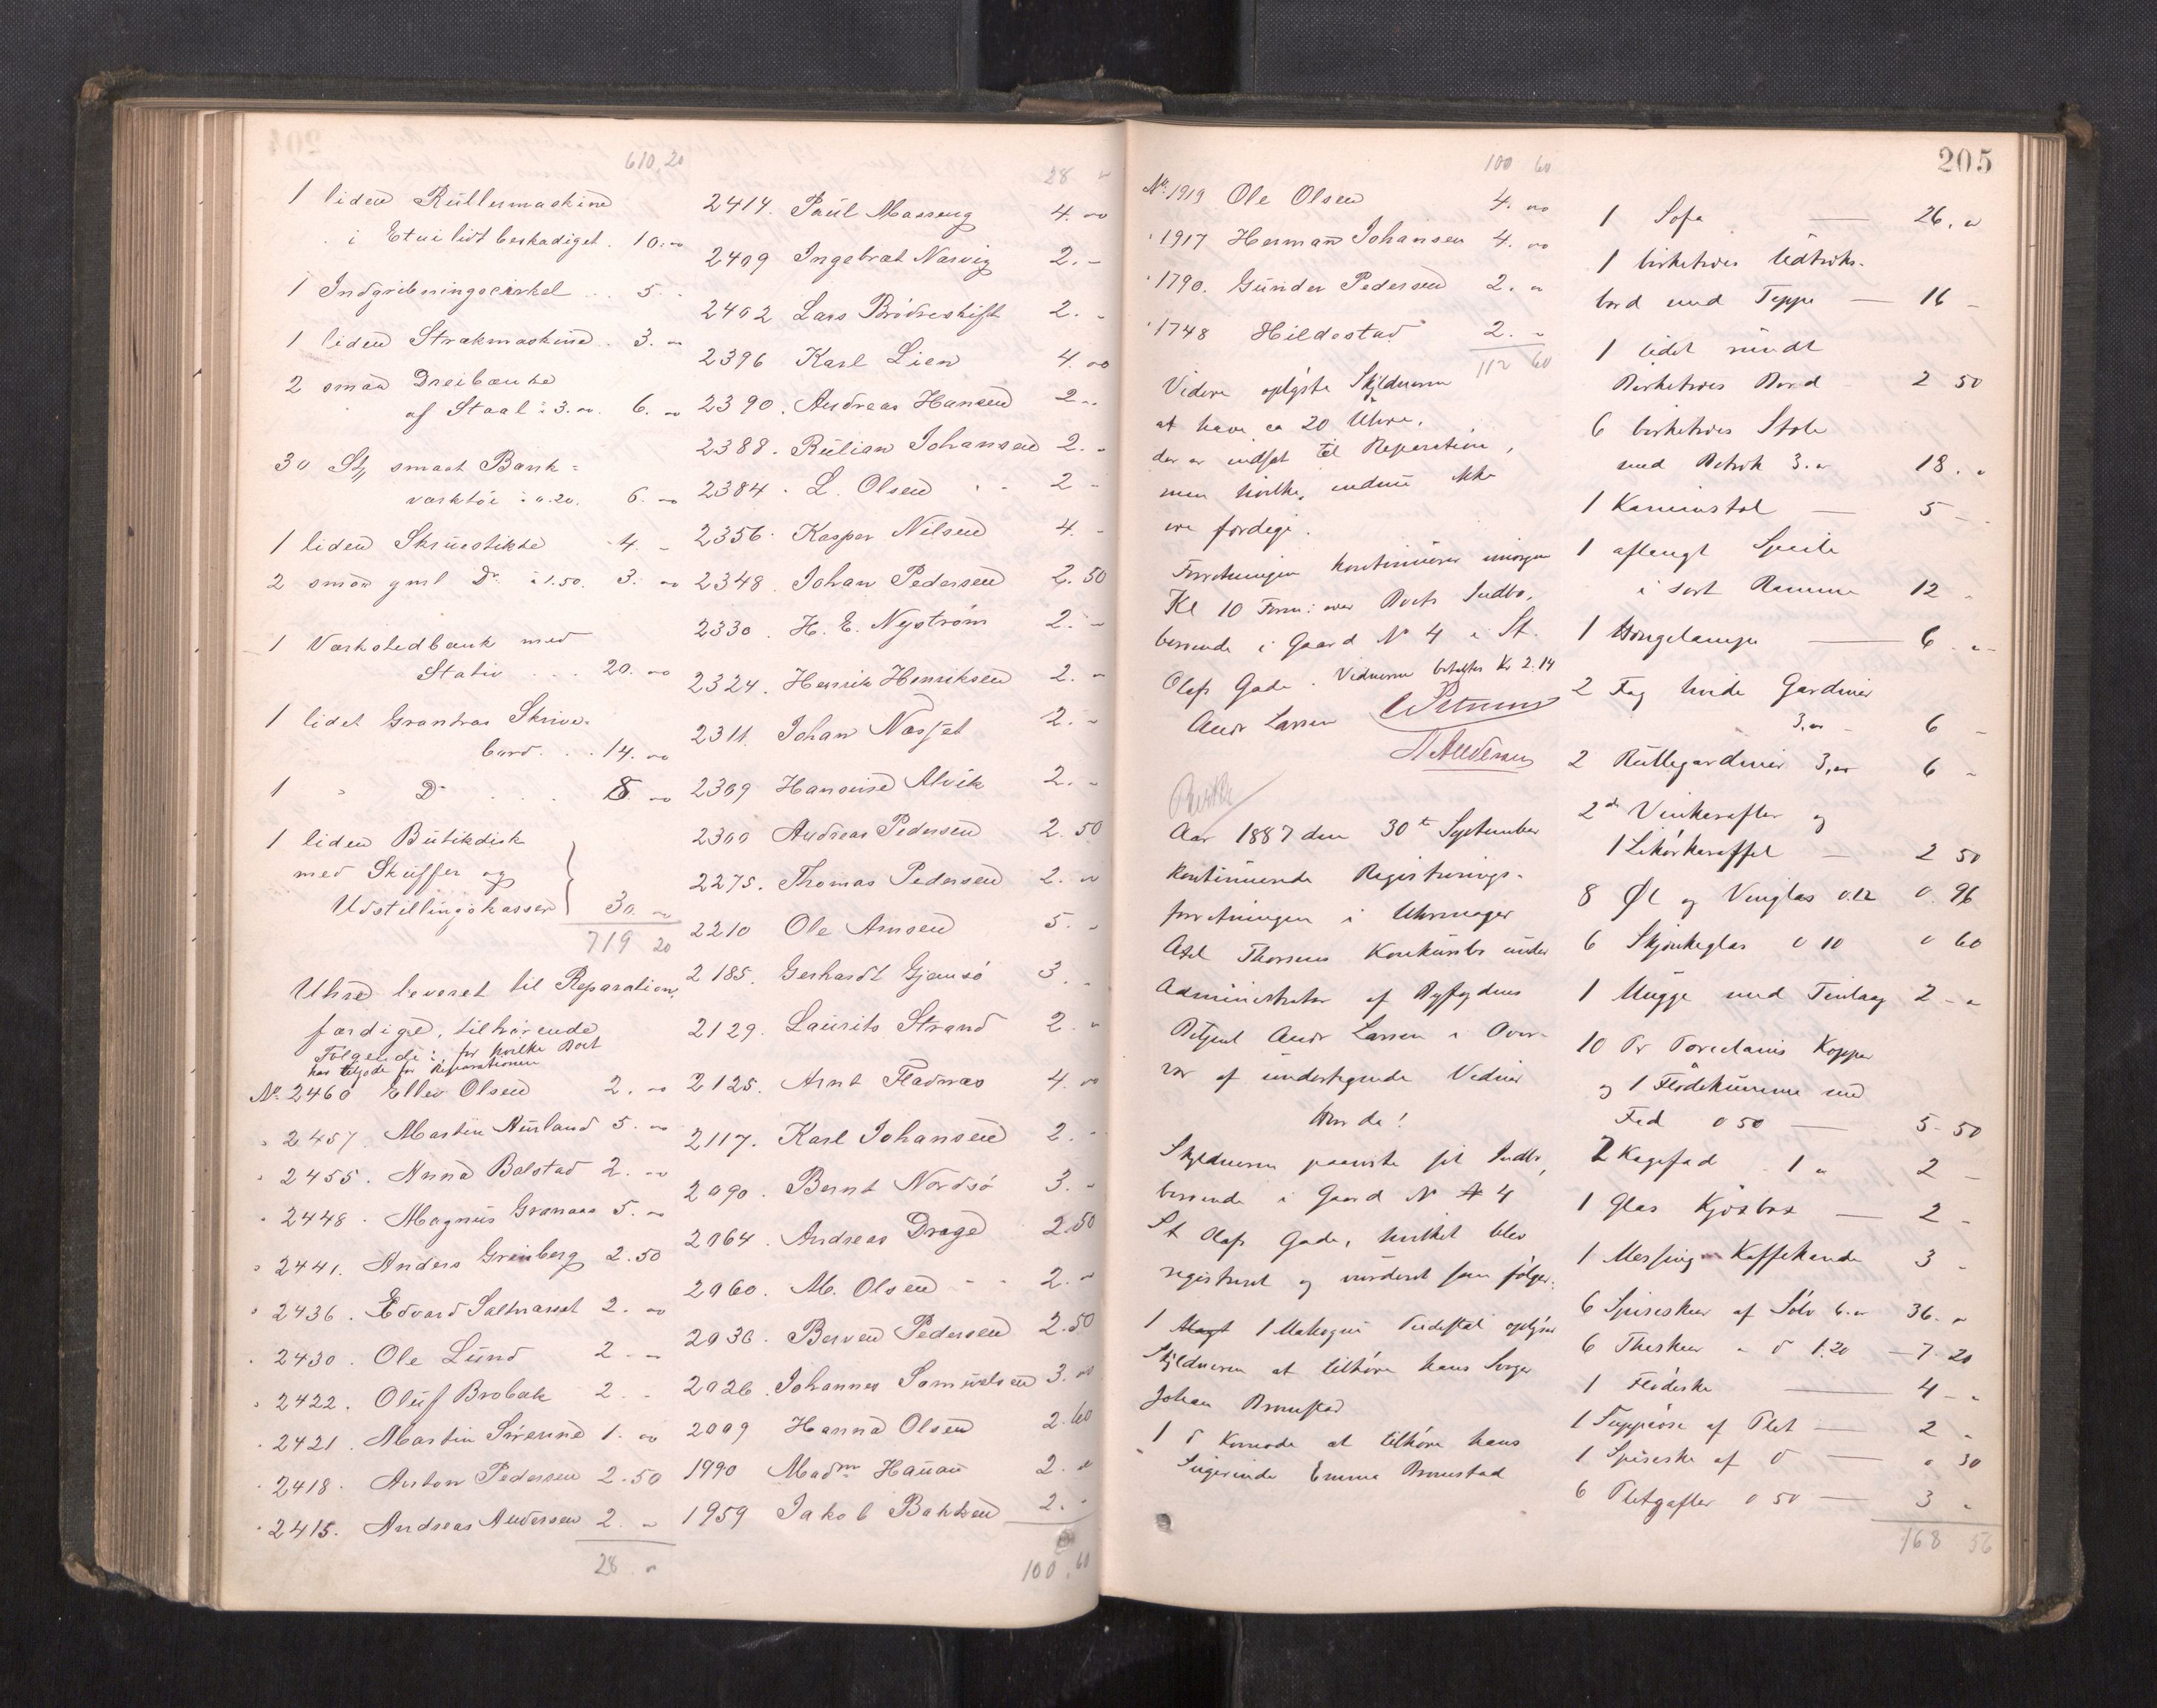 610,20
1 liden Rullermaskine
i Etui lidt beskadiget. 10.00
1 Indgribningscirkel .. 5. -
1 liden Strækmaskine . 3. 00
2 smaa Dreibænke
af Staal à 3.00. 6. 00
30 St smaat Bank=
værktöi à 0.20. 6. 00
1 liden Skruestikke 4. -
2 smaa gml Do à 1.50. 3. 00
1 Værkstedbænk med
Stativ ... 20. 00
1 lidet Grantræs Skrive-
bord ... 14. 00
1 " Do ... 8. 00
1 liden Butikdisk
med Skuffer og
Udstillingskasser 30. 00
719 20
Uhre leveret til Reparation,
færdige, tilhörende
Fölgende: for hvilke Boet
har tilgode for Reparationen
No. 2460 Ellev Olsen 2. 00
" 2457. Martin Aurland 5. 00
" 2455. Anna Balstad 2. 00
" 2448. Magnus Granaas 5. 00
" 2441. Anders Grinberg 2.50
" 2436. Edvard Saltnæsset 2. 00
" 2430. Ole Lund 2 - -
" 2422. Oluf Brobak 2. -
" 2421. Martin Sörenne 1. 00
" 2418. Anton Pedersen 2.50
" 2415. Andreas Andersen 2. -
28. -
28 -
2414. Paul Masseng 4. 00
2409 Ingebrat Narvig 2. -
2402 Lars Brödreskift 2. -
2396 Karl Lien 4. 00
2390. Andreas Hansen 2 ..
2388. Rulian Johansen 2. -
2384. L. Olsen .. 2 -
2356. Kasper Nilsen 4. -
2348. Johan Pedersen 2.50
2330. H. E. Nyström 2. -
2324. Henrik Henriksen 2. -
2311. Johan Næsset 2. -
2309 Hansine Alvik 2. -
2300 Andreas Pedersen 2.50
2275. Thomas Pedersen 2. 00
2210 Ole Arnsen 5. -
2185. Gerhardt Gjemsö 3. -
2129. Laurits Strand 2. -
2125. Arnt Fladnæs 4. 00
2117. Karl Johansen 2. -
2090. Bernt Nordsö 3. -
2064. Andreas Drage 2.50
2060. M. Olsen - - 2. -
2036. Berven Pedersen 2.50
2026. Johannes Samuelsen 3. 00
2009 Hanna Olsen 2.60
1990 Madm Hanan 2. -
1959 Jakob Bakken 2. -
100.60
100 60
No. 1919 Ole Olsen 4. 00
" 1917 Herman Johansen 4. 00
" 1790. Gunder Pedersen 2. 00
" 1748 Hildestad 2. -
112 60
Videre oplyste Skyldneren
at have ca 20 Uhre,
der er indsat til Reparation,
men hvilke, endnu ikke
ere færdige.
Forretningen kontinueres imorgen
Kl 10 Form: over Boets Indbo,
beroende i Gaard No 4 i St.
Olafs Gade. Vidnerne betaltes Kr 2.14
Andr Larsen
Aar 1887 den 30te September
kontinuerede Registrerings-
forretningen i Uhrmager
Axel Thorsens Konkursbo under
Administration af Byfogdens
Betjent Andr Larsen i Over-
vær af undertegnede Vidner
Hvorda!
Skyldneren paaviste sit Indbo,
beroende i Gaard No 4
St Olafs Gade, hvilket blev
registreret og vurderet som fölger:
1 1 Mahogni oplyser
Skyldneren at tilhöre hans
Johan Bronstad
1 do Komode at tilhöre hans
Svigerinde Emma Bronstad
205
1 Sofa — 26. 00
1 birketræs Udtræks-
bord med Teppe — 16 -
1 lidet rundt
Birketræs Bord 2 50
6 birketræs Stole
med Betræk 3.00 18. -
1 Kaminstol — 5 -
1 aflangt Speile
i sort Ramme 12 -
1 Hængelampe — 6 . -
2 Fag hvide Gardiner
3.00 - 6 -
2 Rullegardiner 3,00 6 -
2 do Vinkarafler og
1 Likörkaraffel — 2 50
8 Öl og Vinglas 0.12 0.96
6 Skjænkeglas 0 10 0 60
1 Mugge med Tinlaag 2 - -
10 Pr Porcelæns Kopper
og 1 Flödekumme med
Fad 0 50 — 5-50
2 Kagefad 1 00 2 -
1 Glas — 2 -
1 Messing Kaffekande 3 -
6 Spiseskeer af Sölv 6.00 36. -
6 Theskeer " do 1.20 — 7-20
1 Flödeske — 4 - -
1 af Plet — 2 -
1 Spiseske af do — 0 30
6 Pletgafler 0 50 — 3 -
168 56